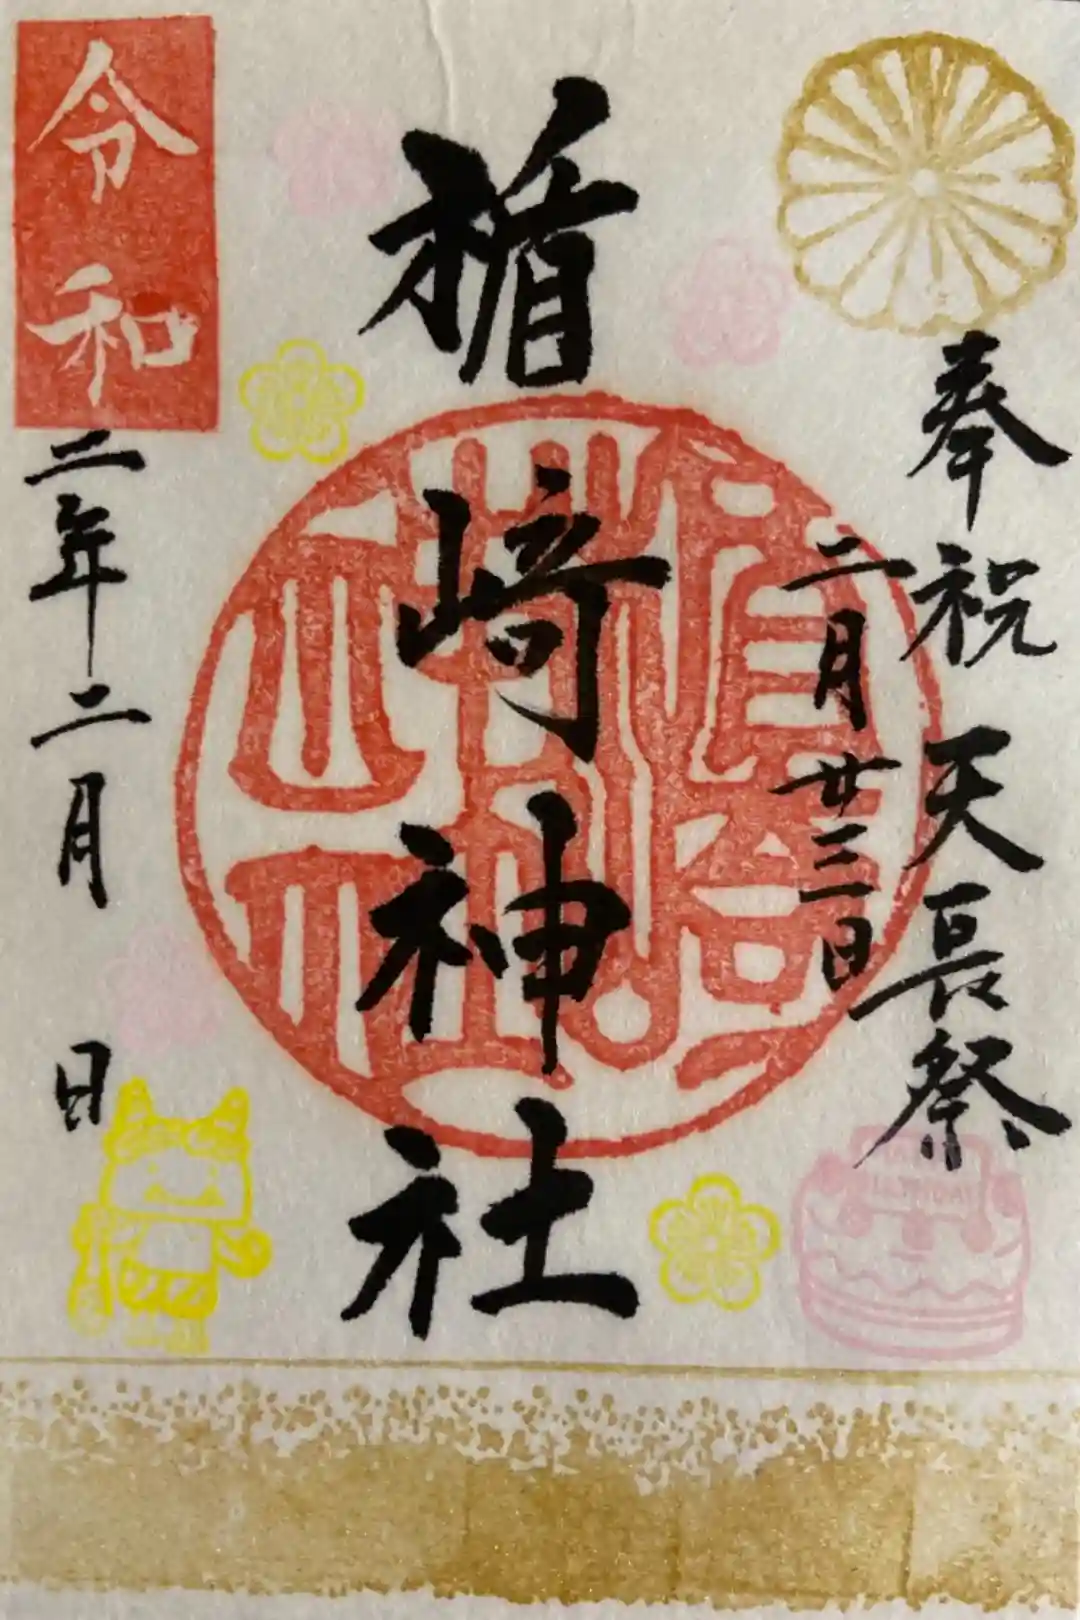 奉祝 天長祭
二月廿三日
楯崎神社
令和
二年二月 日